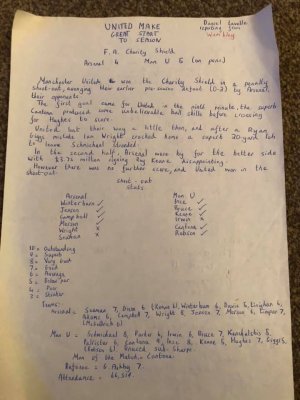 UNITED MAKE
GREAT START
TO SEASON
Daniel Lavelle
reporting from
Wembley
F.A. Charity Shield
Arsenal 4 Man U 5 (on pens)
Manchester United won the Charity Shield in a penalty
shoot-out, avenging their earlier pre-season defeat (0-2) by Arsenal,
their opponents.
The first goal came for United in the ninth minute, the superb
Cantona produced some unbelievable ball skills before crossing
for Hughes to score.
United lost their way a little then, and after a Ryan
Giggs mistake Ian Wright cracked home a superb 20-yard lob
to leave Schmeichel stranded.
In the second half, Arsenal were by far the better side
with £3.75 million signing Roy Keane disappointing.
However there was no further score, and United won in the
shoot-out.
shoot-out
stats
Arsenal Man U
Winterburn ✓ Ince ✓
Jensen ✓ Bruce ✓
Campbell ✓ Keane ✓
Merson ✓ Irwin x
Wright x Cantona ✓
Seaman x Robson ✓
10 = Outstanding
9 = Superb
8 = Very Good
7 = Good
6 = Average
5 = Below par
4 = Poor
3 = Stinker
Teams:
Arsenal = Seaman 7, Dixon 6 (Keown 6), Winterburn 6, Davis 6, Linighan 6,
Adams 6, Campbell 7, Wright 8, Jensen 7, Merson 6, Limpar 7,
(McGoldrick 6)
Man U = Schmeichel 8, Parker 6, Irwin 6, Bruce 7, Kanchelskis 8,
Pallister 6, Cantona 9, Ince 8, Keane 5, Hughes 7, Giggs 5,
(Robson 6). Unused sub: Sharpe.
Man of the Match: Cantona.
Referee = G. Ashby 7.
Attendance = 66,519.